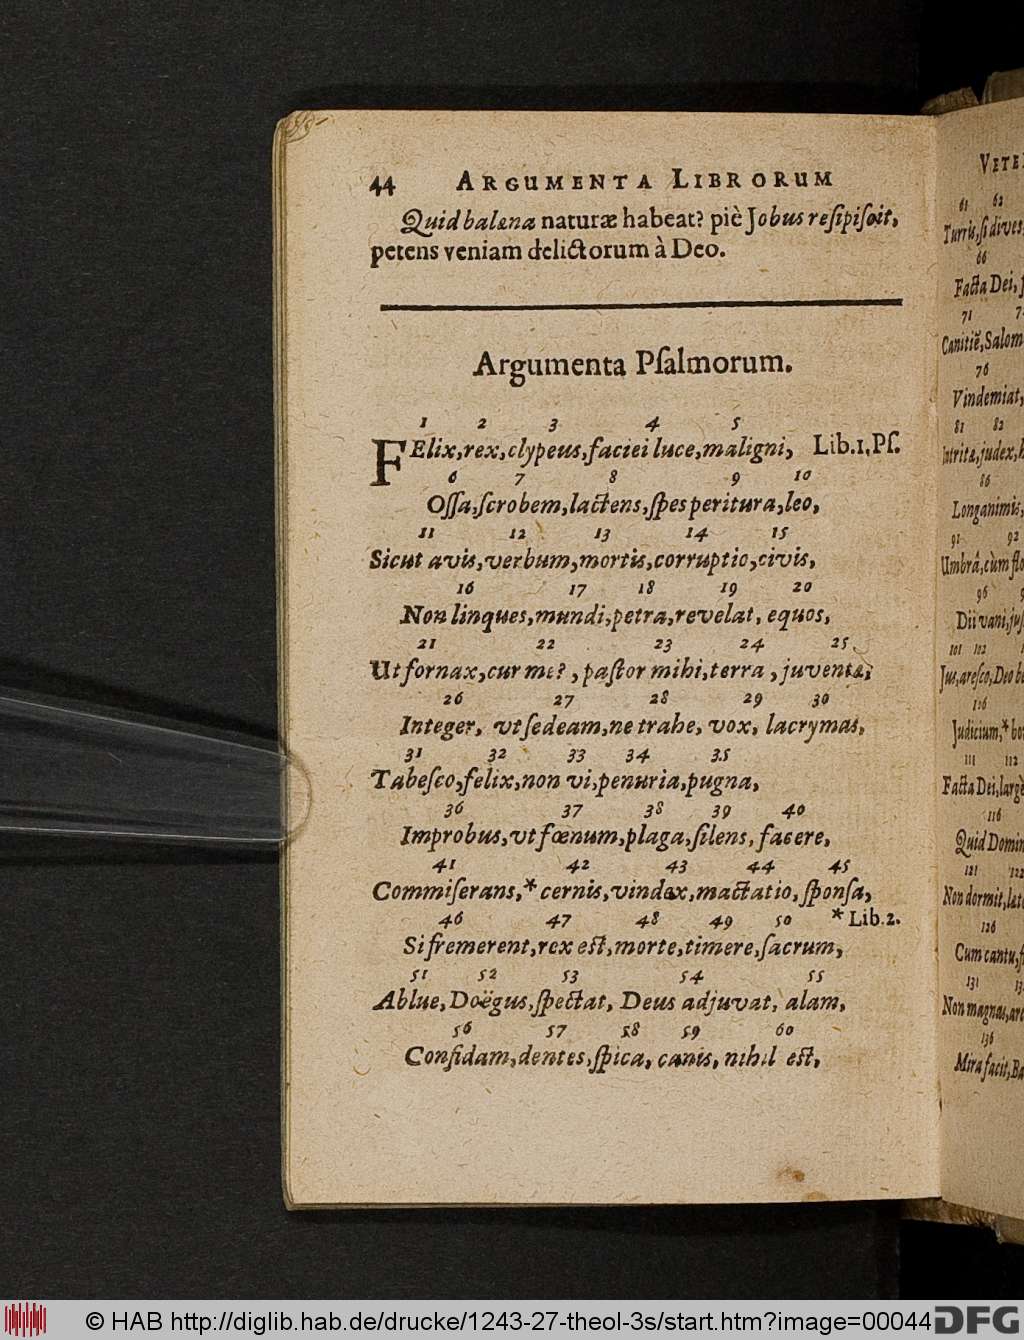 44 ARGUMENTA LIBRORUM
Quid balæna naturæ habeat? piè Jobus reſipiſcit,
petens veniam delictorum à Deo.
Argumenta Pſalmorum.
1 2 3 4 5
FElix, rex, clypeus, faciei luce, maligni, Lib.1. Pſ.
6 7 8 9 10
Oſſa, ſcrobem, lactens, ſpes peritura, leo,
11 12 13 14 15
Sicut avis, verbum, mortis, corruptio, civis,
16 17 18 19 20
Non linques, mundi, petra, revelat, equos,
21 22 23 24 25
Ut fornax, cur me?, paſtor mihi, terra, juventæ,
26 27 28 29 30
Integer, vt ſedeam, ne trahe, vox, lacrymas,
31 32 33 34 35
Tabeſco, felix, non vi, penuria, pugna,
36 37 38 39 40
Improbus, vt fœnum, plaga, ſilens, facere,
41 42 43 44 45
Commiſerans, * cernis, vindex, mactatio, ſponſa,
46 47 48 49 50 * Lib.2.
Si fremerent, rex eſt, morte, timere, ſacrum,
51 52 53 54 55
Ablue, Doëgus, ſpectat, Deus adjuvat, alam,
56 57 58 59 60
Confidam, dentes, ſpica, canis, nihil eſt,
61 62
Turris, ſi dives,
66
Facta Dei,
71
Canitiē, Salom
76
Vindemiat,
81 82
judex,
86
Longanimis,
91 92
Umbrâ, cùm flo
96
Dii vani, juſ
101 102
Jus, areſco, Deo be
106
Judicium, * bo
111 112
Facta Dei, largè
116
Quid Domin
121 122
Non dormit, læt
126
Cum cantu, f
131
Non magnas, arc
136
Mira facit, Ba
© HAB http://diglib.hab.de/drucke/1243-27-theol-3s/start.htm?image=00044
DFG